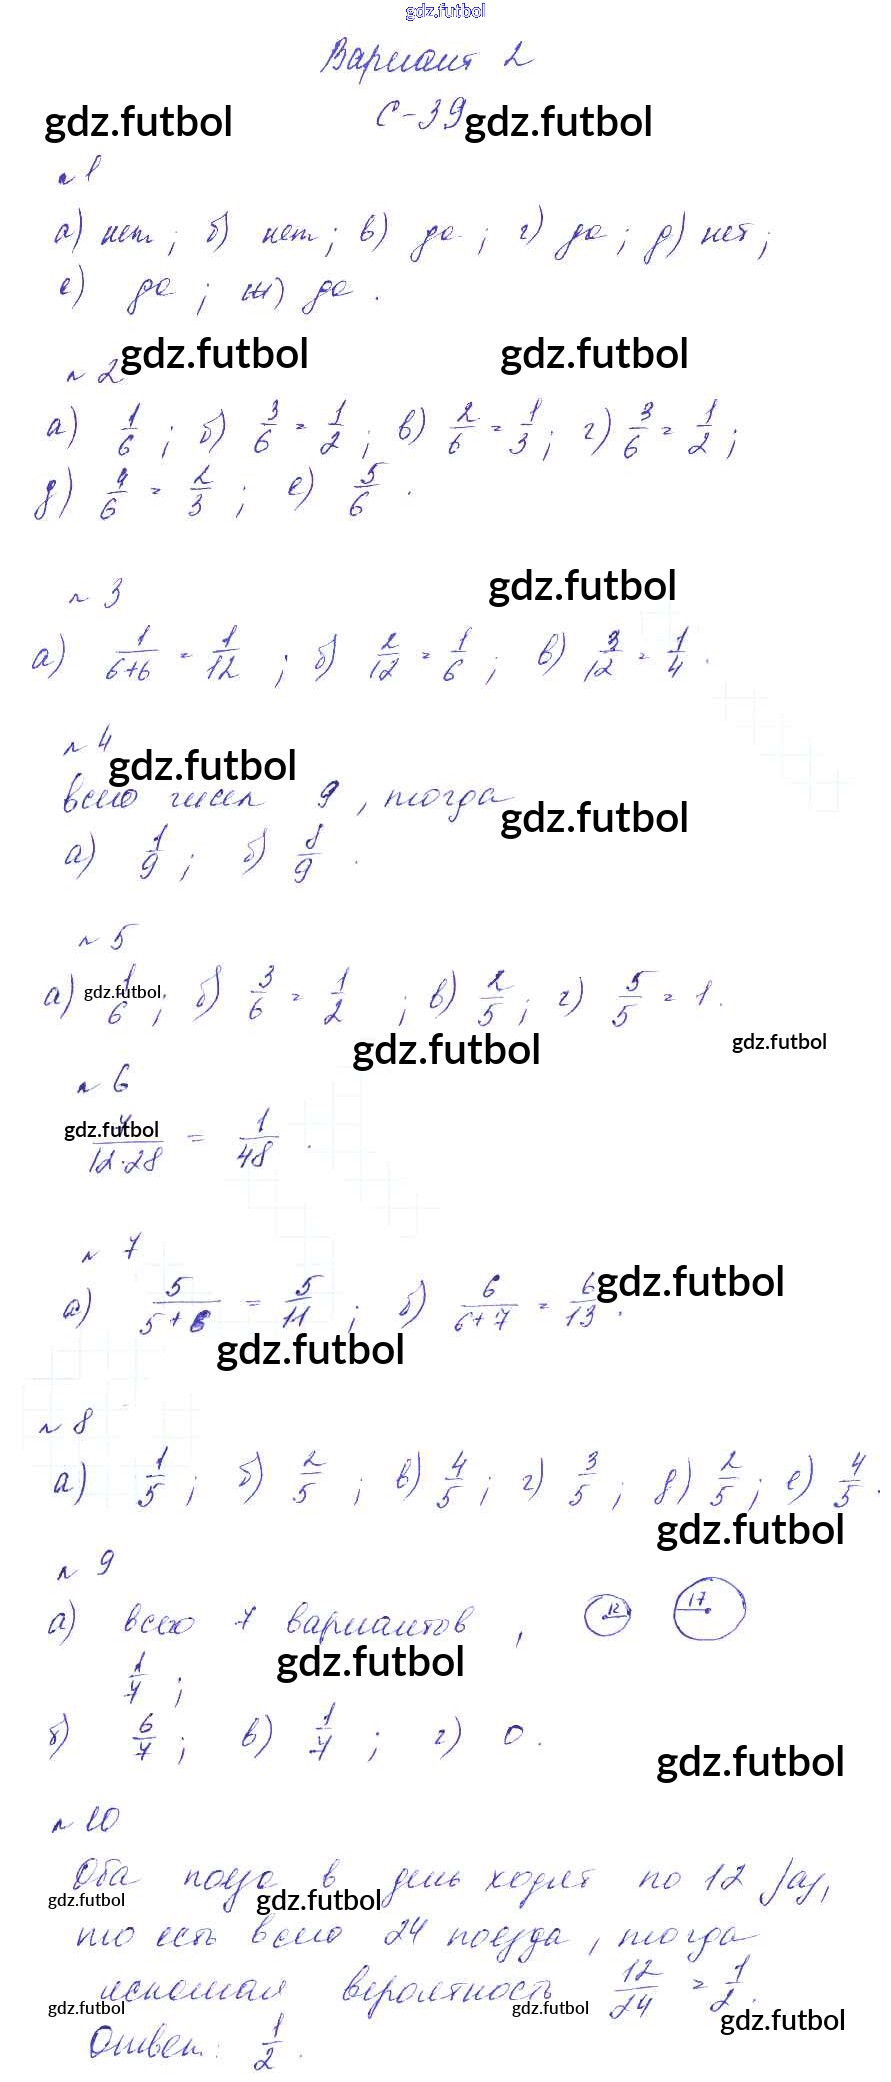 gdz.futbol
Вариант 2
С-39
gdz.futbol gdz.futbol
№ 1
а) нет ; б) нет ; в) да ; г) да ; д) нет ;
е) да ; ж) да .
№ 2
gdz.futbol gdz.futbol
а) 1/6 ; б) 3/6 = 1/2 ; в) 2/6 = 1/3 ; г) 3/6 = 1/2 ;
д) 4/6 = 2/3 ; е) 5/6 .
№ 3
gdz.futbol
а) 1/(6+6) = 1/12 ; б) 2/12 = 1/6 ; в) 3/12 = 1/4 .
№ 4
gdz.futbol
всего чисел 9 , тогда
gdz.futbol
а) 1/9 ; б) 8/9 .
№ 5
а) 1/6 ; б) 3/6 = 1/2 ; в) 2/5 ; г) 5/5 = 1 .
gdz.futbol
gdz.futbol gdz.futbol
№ 6
gdz.futbol
7/(12·28) = 1/48 .
№ 7
а) 5/(5+6) = 5/11 ; б) 6/(6+7) = 6/13 .
gdz.futbol
gdz.futbol
№ 8
а) 1/5 ; б) 2/5 ; в) 4/5 ; г) 3/5 ; д) 2/5 ; е) 4/5 .
gdz.futbol
№ 9
а) всего 7 вариантов , 12 17
gdz.futbol
1/7 ;
б) 6/7 ; в) 1/7 ; г) 0 .
gdz.futbol
№ 10
Оба поезда в день ходят по 12 раз,
gdz.futbol gdz.futbol
то есть всего 24 поезда , тогда
искомая вероятность 12/24 = 1/2 .
gdz.futbol gdz.futbol gdz.futbol
Ответ: 1/2 .